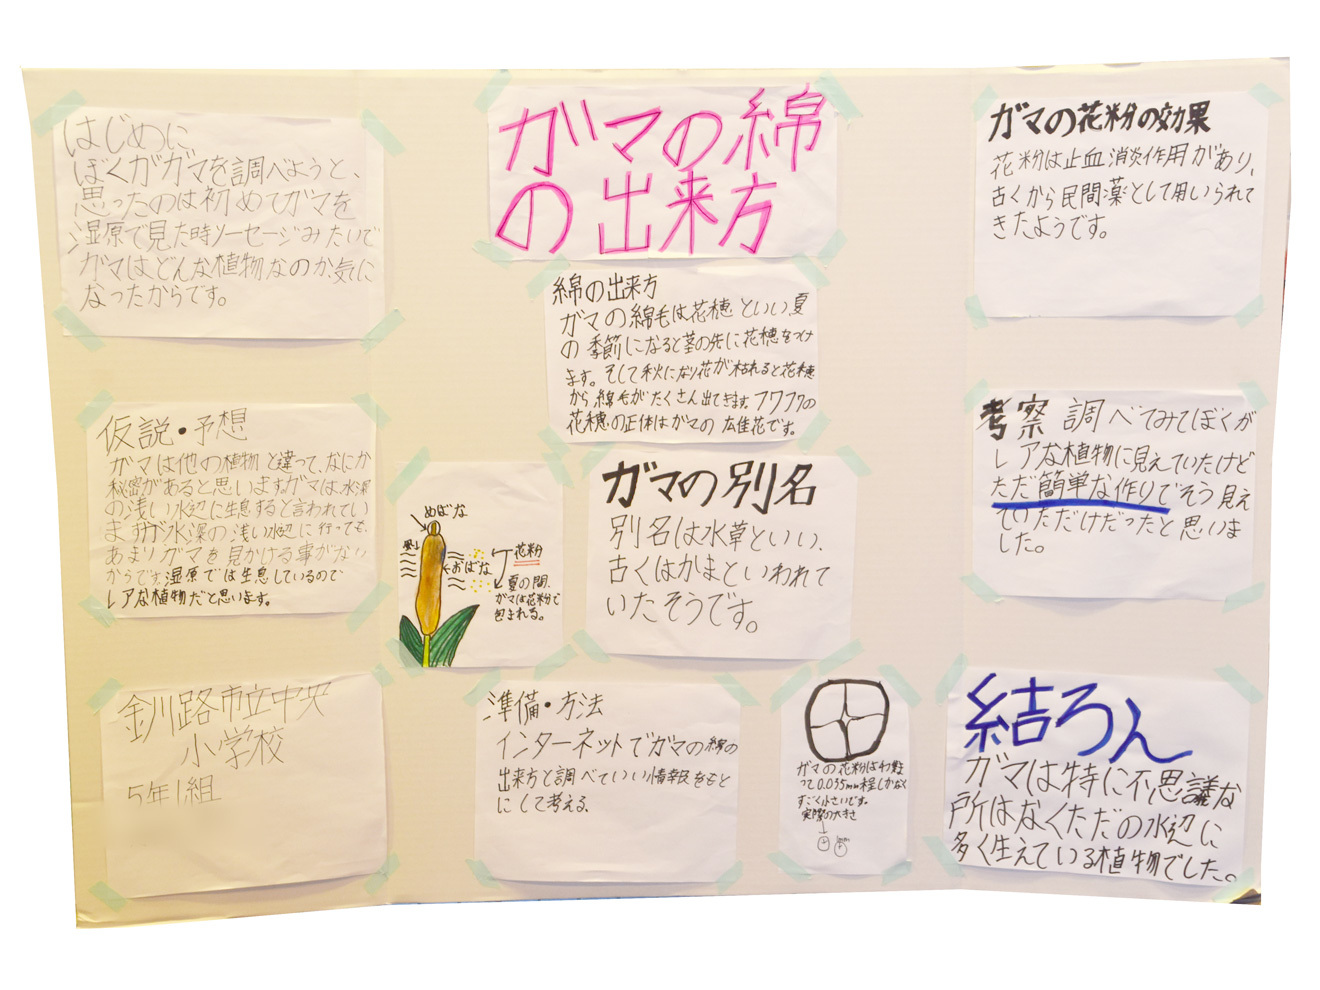 ガマの綿
の出来方
はじめに
ぼくがガマを調べようと、
思ったのは初めてガマを
湿原で見た時ソーセージみたいで
ガマはどんな植物なのか気に
なったからです。
仮説・予想
ガマは他の植物と違って、なにか
秘密があると思います。ガマは水深
の浅い水辺に生息すると言われてい
ますが水深の浅い水辺に行っても、
あまりガマを見かける事がない
からです。湿原では生息しているので
レアな植物だと思います。
釧路市立中央
小学校
5年1組
綿の出来方
ガマの綿毛は花穂といい夏
の季節になると茎の先に花穂をつけ
ます。そして秋になり花が枯れると花穂
から綿毛がたくさん出てきます。フワフワの
花穂の正体はガマの雌花です。
めばな
風↓
おばな
花粉
夏の間、
ガマは花粉で
包まれる。
ガマの別名
別名は水草といい、
古くはかまといわれて
いたそうです。
準備・方法
インターネットでガマの綿の
出来方と調べていい情報をもと
にして考える。
ガマの花粉は
って0.035mm程しかなく
すごく小さいです。
実際の大きさ
1mm
ガマの花粉の効果
花粉は止血消炎作用があり、
古くから民間薬として用いられて
きたようです。
考察 調べてみてぼくが
レアな植物に見えていたけど
ただ簡単な作りでそう見え
ていただけだったと思いま
した。
結ろん
ガマは特に不思議な
所はなくただの水辺に
多く生えている植物でした。